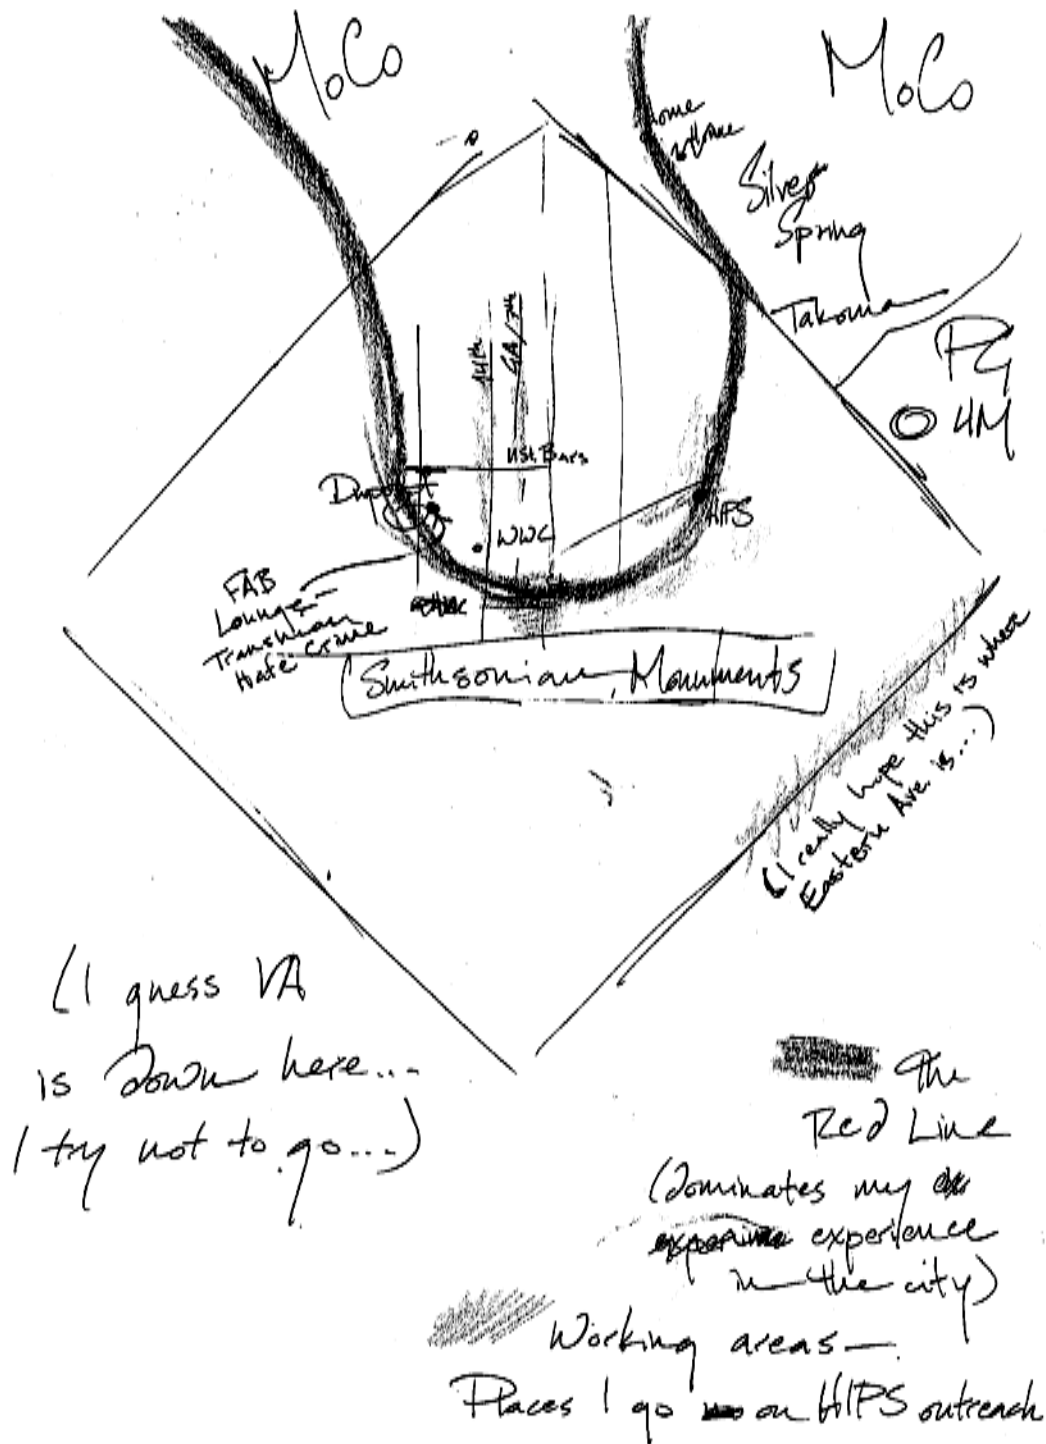 MoCo
MoCo
Silver
Spring
Takoma
PG
UM
14th
GA/7th
USt. Bars
Dupont
WWC
HIPS
FAB
Lounge-
Transwoman
Hate Crime
Smithsonian, Monuments
(I really hope this is where
Eastern Ave. is...)
(I guess VA
is down here...
I try not to go...)
The
Red Line
(dominates my
experience
in the city)
Working areas—
Places I go on HIPS outreach